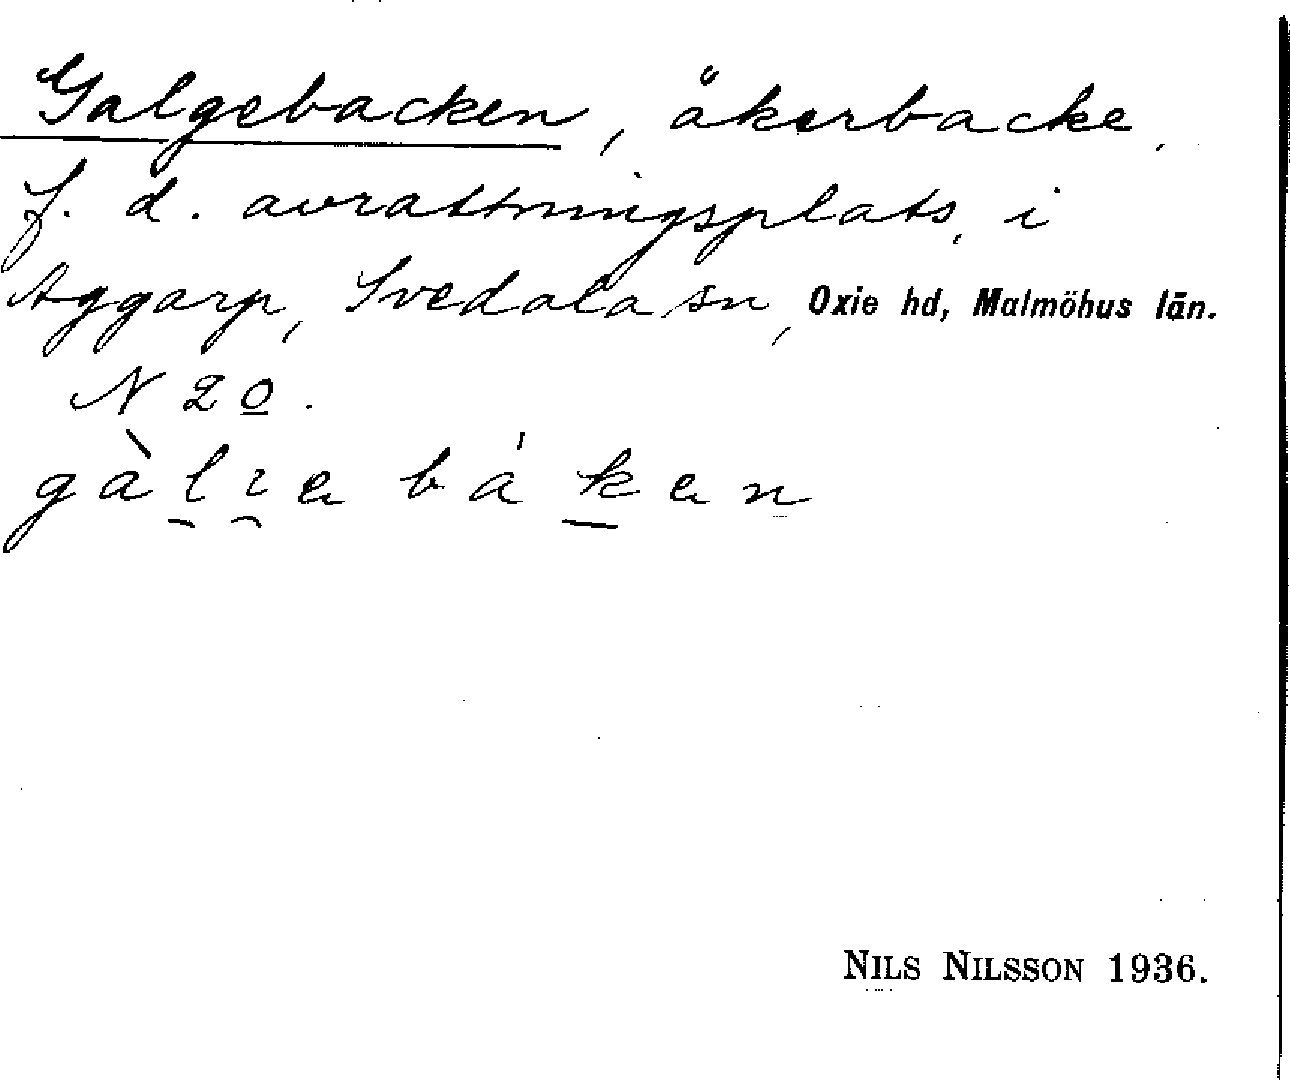 Galgebacken, åkerbacke,
f. d. avrattningsplats, i
Aggarp, Svedala sn, Oxie hd, Malmöhus län.
N 20.
gàlıebáken
NILS NILSSON 1936.